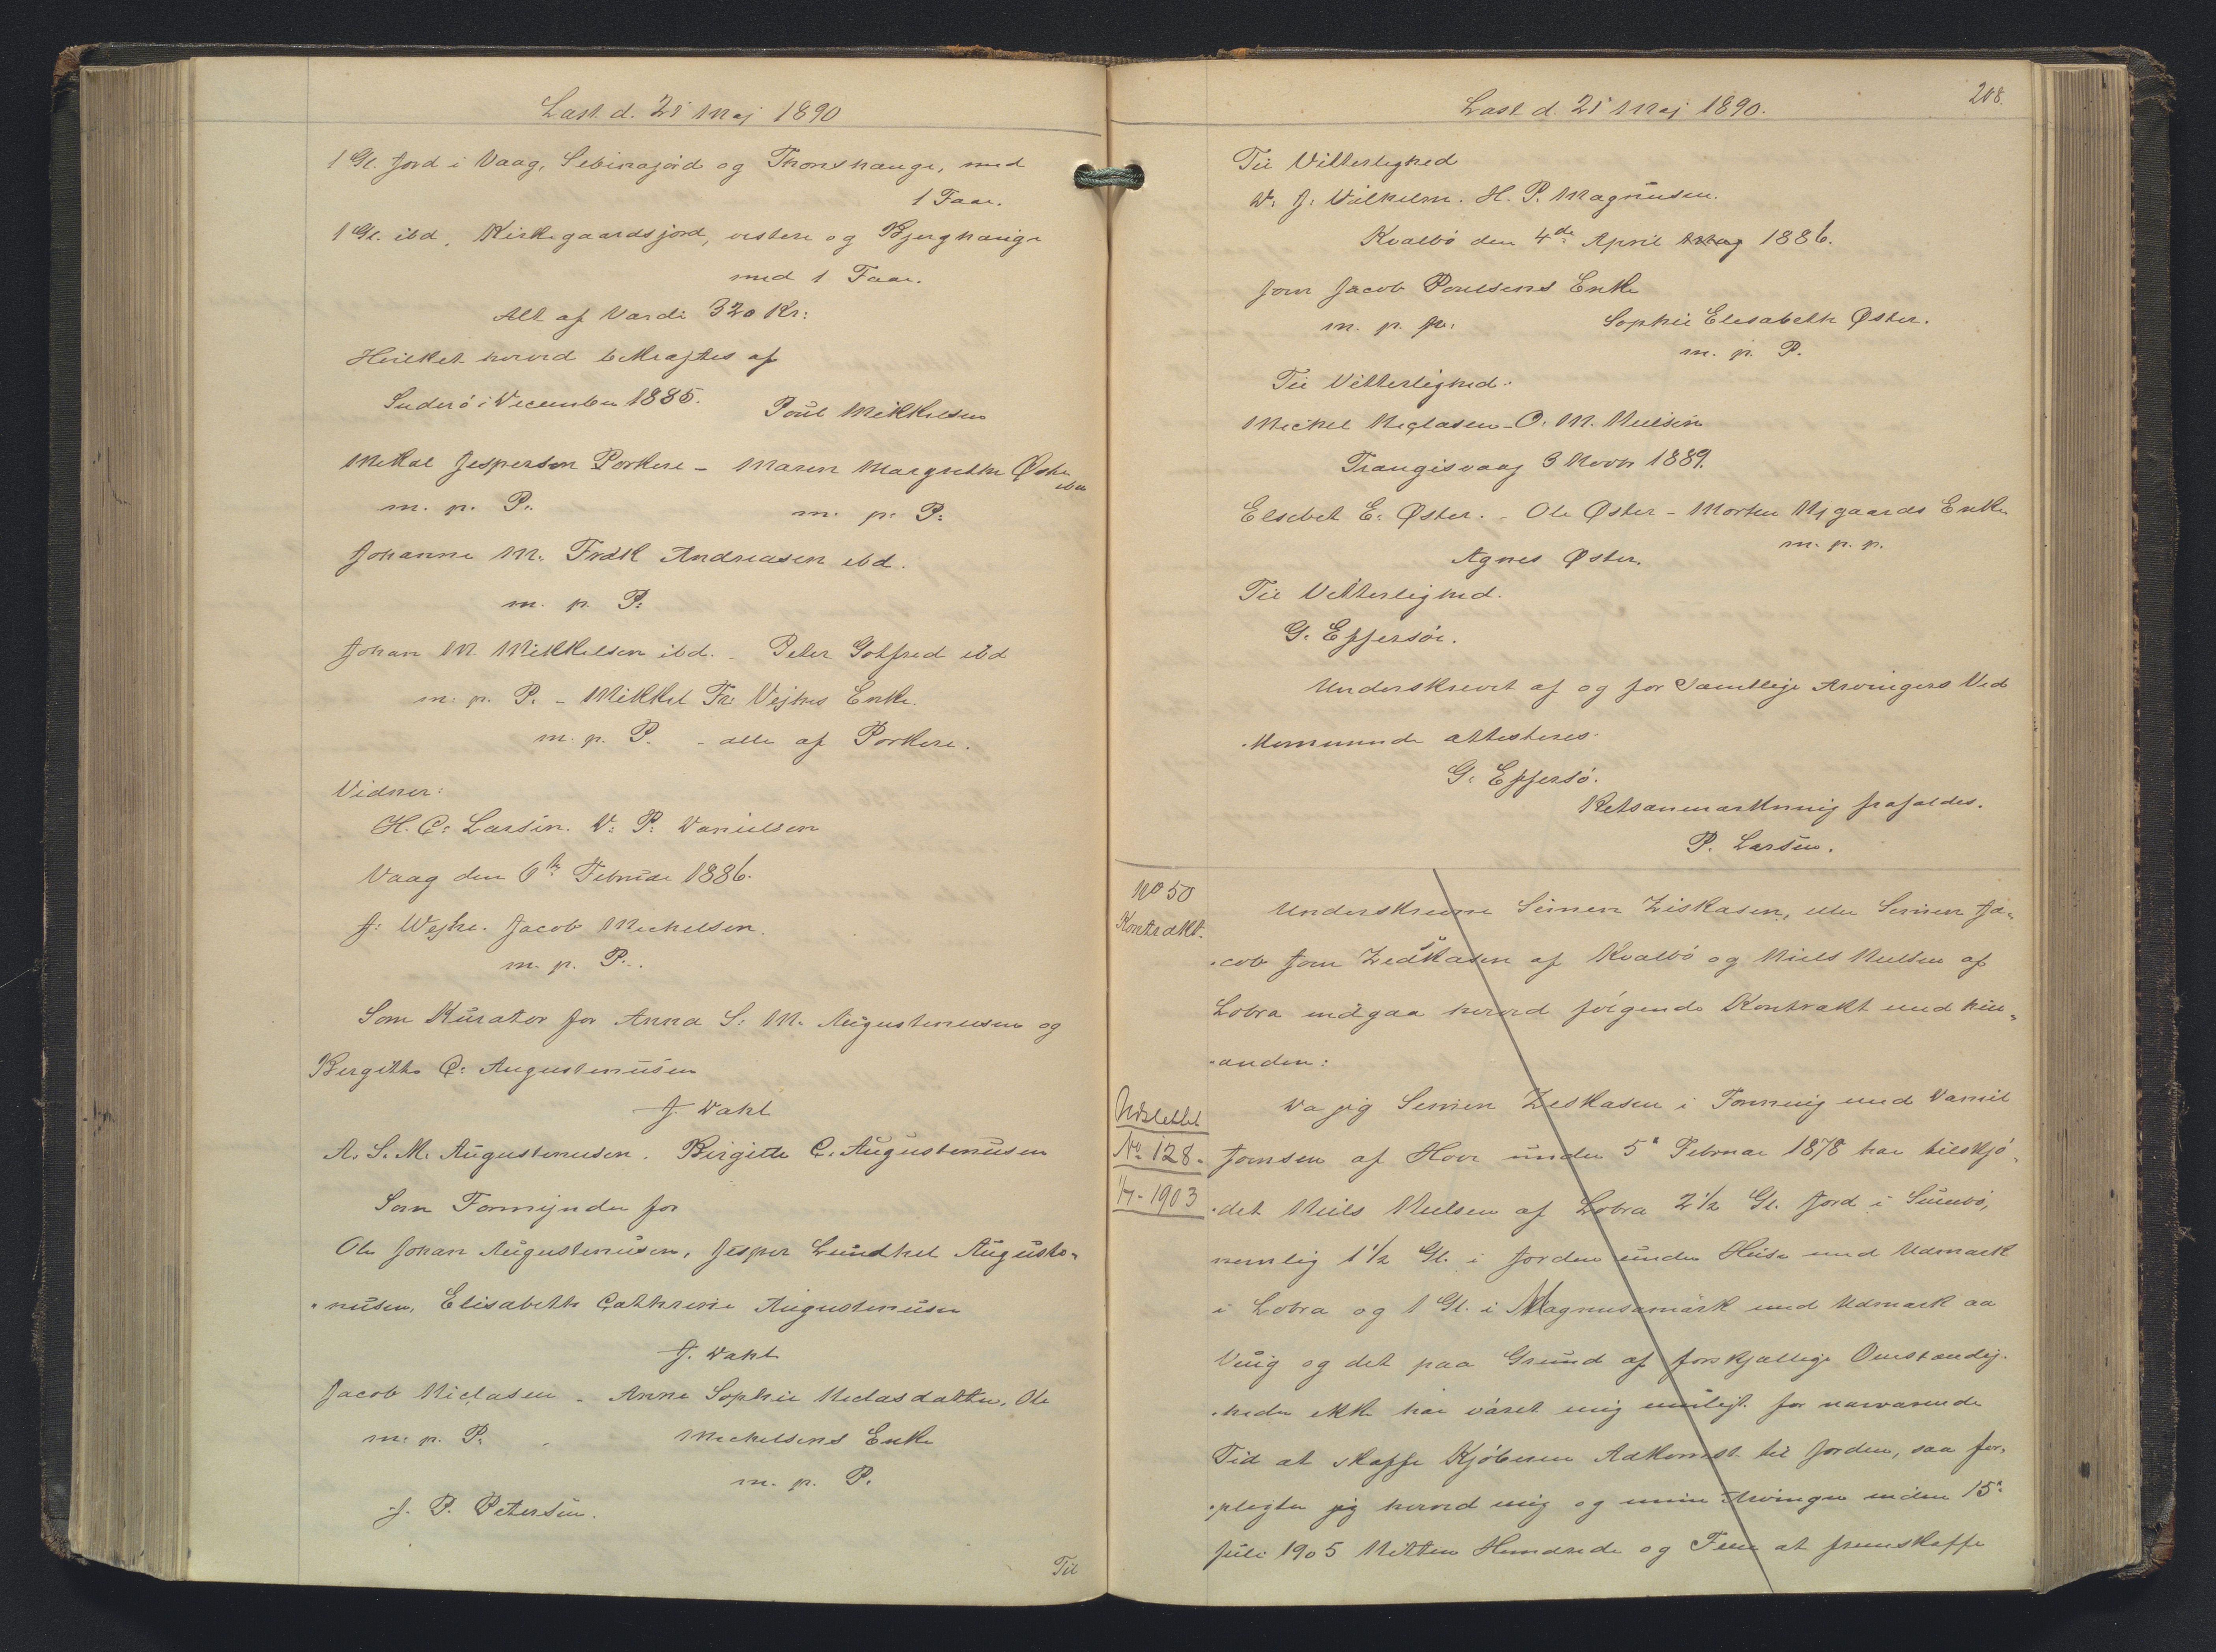 Læst d. 21' Maj 1890
1 Gl. Jord i Vaag, Sebinajord og Thomshauge, med
1 Faar.
1 Gl. ibd, Kirkegaardsjord, vestere og Bjerghauge
med 1 Faar.
Alt af Værdi 320 Kr:
Hvilket herved bekræftes af
Suderø i December 1885. Poul Mikkelsen
Mikal Jespersen Porkere – Maren Margrethe Øster
ibd
m. p. P. m. p: P:
Johanne M. Fredk Andreasen ibd.
m. p. P:
Johan M. Mikkelsen ibd. – Peter Gotfred ibd
m: p. P. – Mikkel Fr: Vejhes Enke.
m. p. P. – alle af Porkere.
Vidner:
H. C: Larsen. D: P: Danielsen
Vaag den 6te Februar 1886.
J: Wejhe. Jacob Michelsen.
m. p. P..
Som Kurator for Anna S: M. Augustinusen og
Bergitte C: Augustinusen
J. Dahl
A. S. M. Augustinusen. Birgitte C. Augustinusen
Som Formynder for
Ole Johan Augustinusen, Jesper Lundhel Augusti„
„nusen, Elisabeth Cathrine Augustinusen
J. Dahl
Jacob Niclasen – Anne Sophie Niclasdatter, Ole
m: p. P: Michelsens Enke
m. p. P.
J. P. Petersen.
Til
Læst d. 21' Maj 1890.
208.
Til Vitterlighed
D: J: Vilhelm. H. P. Magnusen.
Kvalbø den 4de April Maj 1886.
Joen Jacob Poulsens Enke
m. p. p: Sophie Elesabeth Øster.
m. p. P.
Til Vitterlighed.
Mickel Niclasen – O. M. Nielsen
Trangisvaag 3 Novbr 1889.
Elsebet E: Øster. – Ole Øster – Morten Nygaards Enke
m. p. p.
Agnes Øster.
Til Vitterlighed.
G: Effersøe.
Underskrevet af og for Samtlige Arvingers Ved
„kommende attesteres
G: Effersø.
Retsanmærkning frafaldes.
P. Larsen.
No 50
Kontrakt.
Underskrevne Simen Ziskasen, eller Simen Ja„
„cob Joen Zeskasen af Kvalbø og Niels Nielsen af
Lobra indgaa herved følgende Kontrakt med hin„
„anden:
Udslettet
No 128.
1/7 - 1903
Da jeg Simen Zeskasen i Forening med Daniel
Joensen af Hove under 5' Februar 1878 har tilskjø„
„det Niels Nielsen af Lobra 2 1/2 Gl. Jord i Sumbø,
nemlig 1 1/2 Gl. i Jorden under Heise med Udmark
i Lobra og 1 Gl. i Magnusamark med Udmark aa
Vuig og det paa Grund af forskjællige Omstændig„
„heder ikke har været mig muligt for nærværende
Tid at skaffe Kjøberen Adkomst til Jorden, saa for„
„pligter jeg herved mig og mine Arvinger inden 15'
Juli 1905 Nitten Hundrede og Fem at fremskaffe